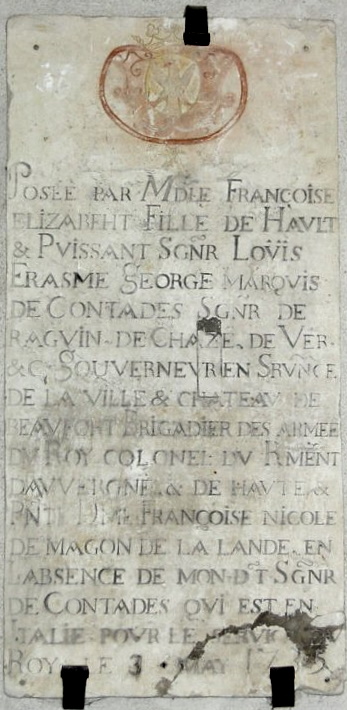 POSÉE PAR MDLE FRANÇOISE
ELIZABEHT FILLE DE HAVLT
& PVISSANT SGNR LOVIS
ERASME GEORGE MARQVIS
DE CONTADES SGNR DE
RAGVIN DE CHAZE, DE VER
&C, GOUVERNEVR EN SRVNCE
DE LA VILLE & CHATEAV DE
BEAVFORT BRIGADIER DES ARMEE
DV ROY COLONEL DV RMENT
DAVVERGNE, & DE HAVTE &
PNTE DME FRANÇOISE NICOLE
DE MAGON DE LA LANDE, EN
LABSENCE DE MON DT SGNR
DE CONTADES QVI EST EN
ITALIE POVR LE SERVICE DV
ROY LE 3 MAY